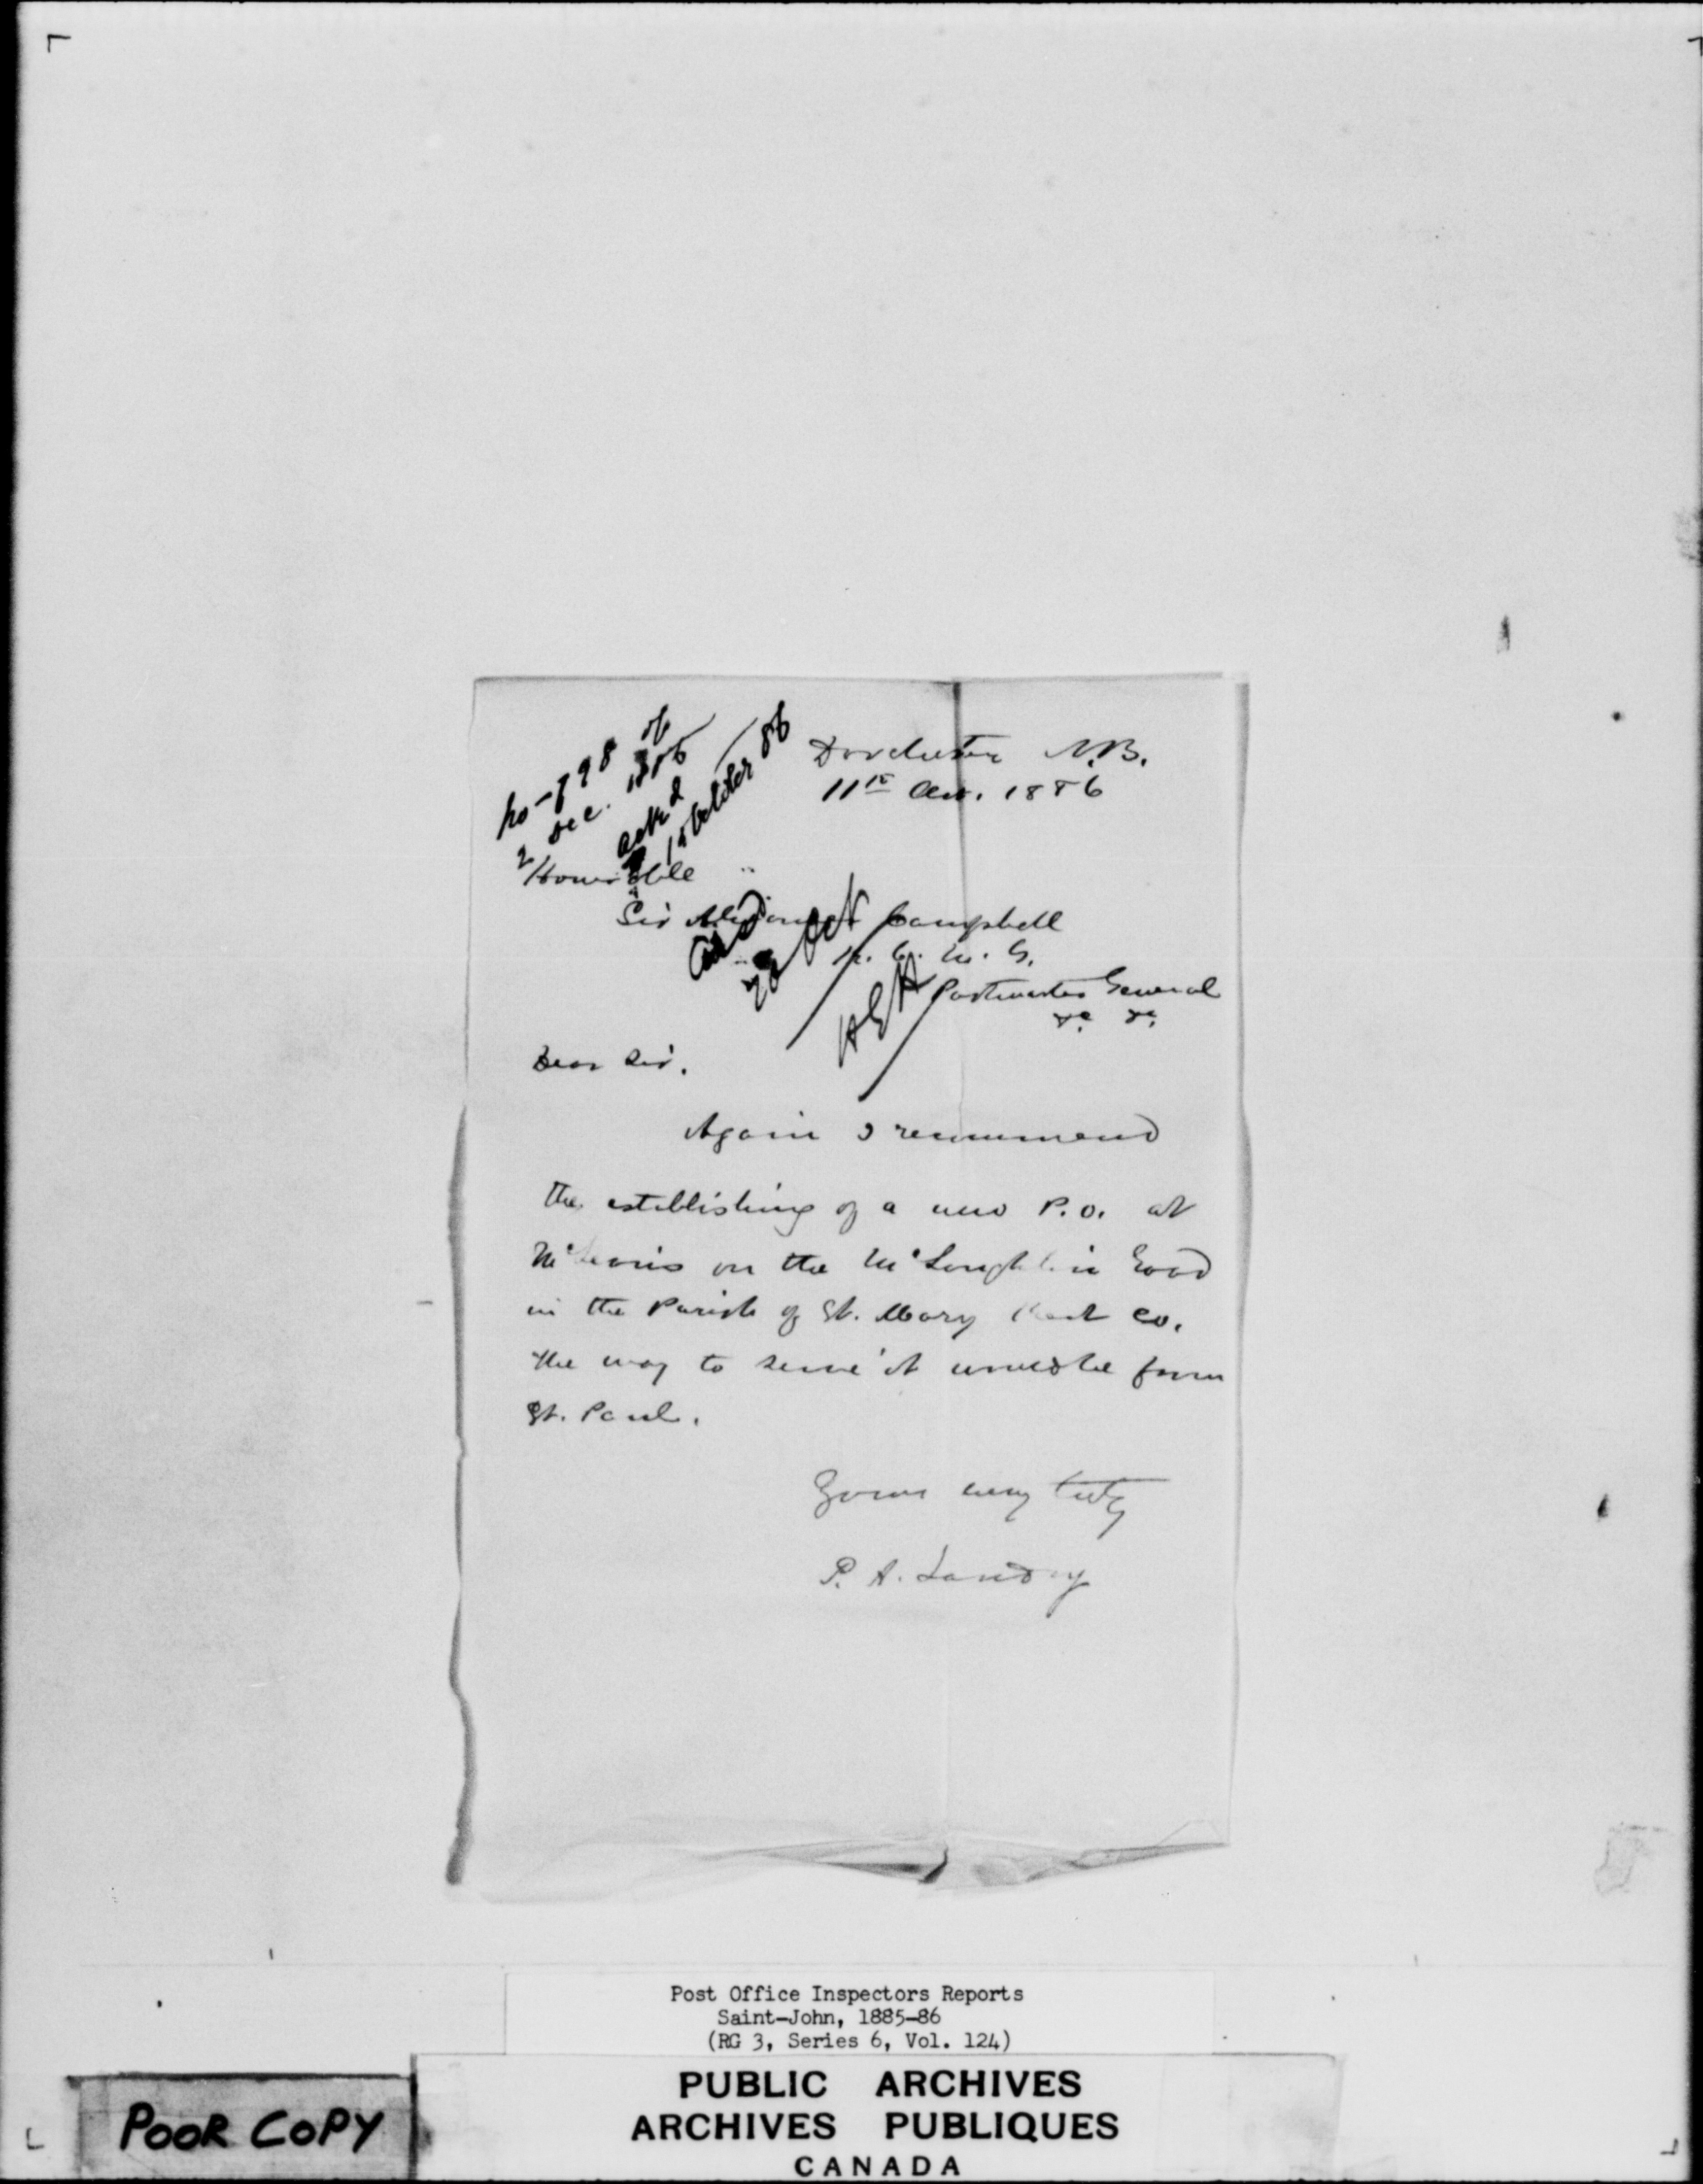 no-898 of
Dec. 1886
Ack'd
15 October 86
Dorchester N.B.
11th Oct. 1886
Honorable
Sir Alexander Campbell
K. C. M. G.
Postmaster General
&c &c
28 Oct
Dear Sir.
Again I recommend
the establishing of a new P.O. at
on the McLoughlin Road
in the Parish of St. Mary Kent Co.
The way to serve it would be from
St. Paul.
Yours very truly
P. A. Landry
Post Office Inspectors Reports
Saint-John, 1885-86
(RG 3, Series 6, Vol. 124)
POOR COPY
PUBLIC ARCHIVES
ARCHIVES PUBLIQUES
CANADA